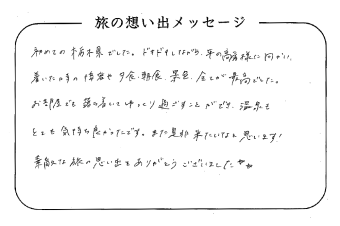 旅の想い出メッセージ
初めての栃木県でした。ドキドキしながら、平の高房様に向かい、
着いた時の待遇や夕食、朝食、景色、全てが最高でした。
お部屋でも落ち着いてゆっくり過ごすことができ、温泉も
とても気持ち良かったです。また是非来たいなと思います！
素敵な旅の思い出をありがとうございました